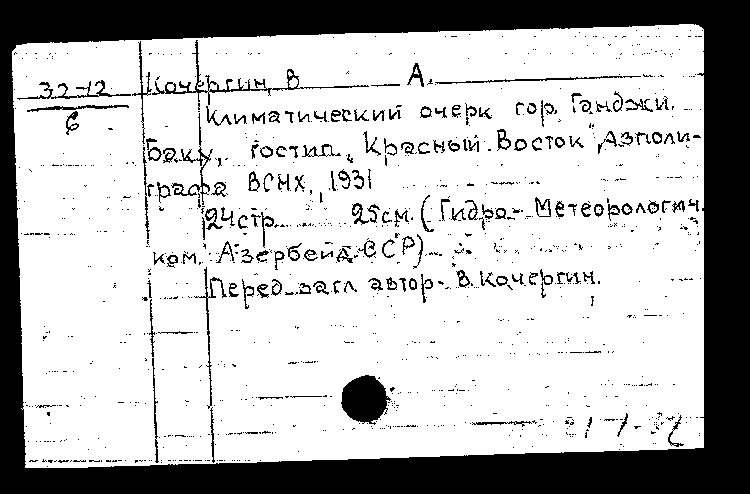 32-12 Кочергин, В А.
6
Климатический очерк гор. Ганджи.
Баку, гостип. "Красный Восток", Азполи-
графа ВСНХ, 1931
24стр. 25см. (Гидро-Метеорологич.
ком. Азербейд. ССР)
Перед загл автор- В. Кочергин.